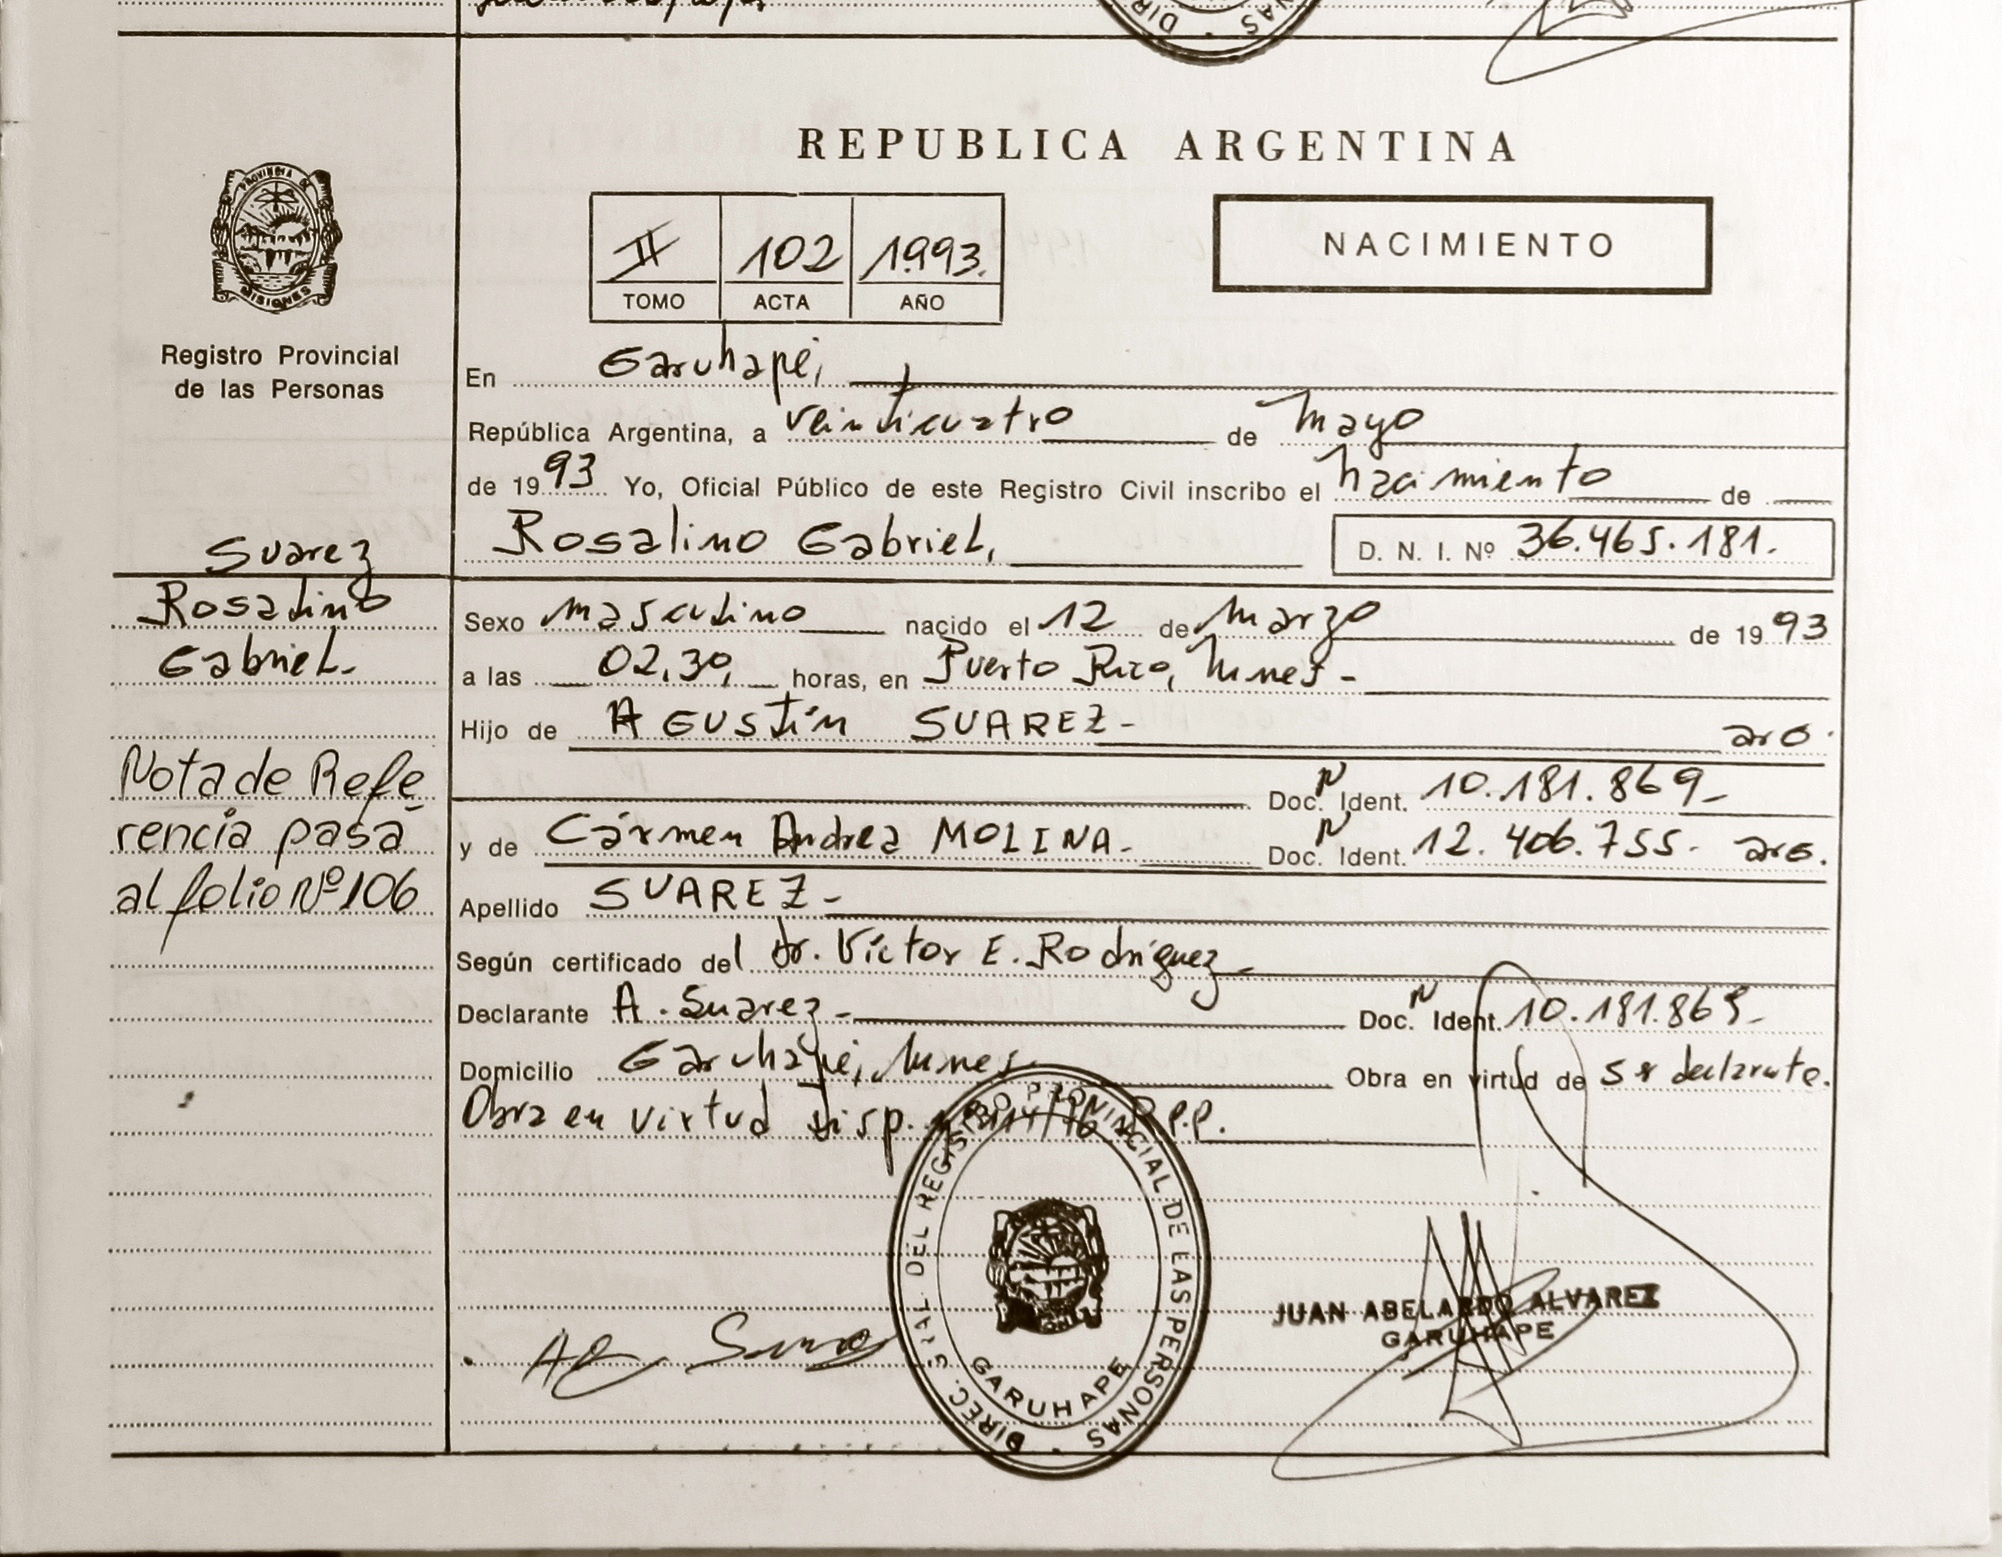 REPUBLICA ARGENTINA
PROVINCIA DE
MISIONES
Registro Provincial
de las Personas
II 102 1.993.
TOMO ACTA AÑO
NACIMIENTO
En Garuhapé,
República Argentina, a veinticuatro de Mayo
de 1993 Yo, Oficial Público de este Registro Civil inscribo el nacimiento de
Rosalino Gabriel, D. N. I. Nº 36.465.181.
Suarez
Rosalino
Gabriel.
Nota de Refe
rencia pasa
al folio Nº 106
Sexo masculino nacido el 12 de Marzo de 1993
a las 02,30, horas, en Puerto Rico, Mnes-
Hijo de AGUSTÍN SUAREZ- arg.
Doc. N Ident. 10.181.869-
y de Cármen Andrea MOLINA- Doc. N Ident. 12.406.755. arg.
Apellido SUAREZ-
Según certificado del Dr. Víctor E. Rodríguez-
Declarante A. Suarez- Doc. N Ident. 10.181.869-
Domicilio Garuhapé, Mnes. Obra en virtud de ser declarante.
Obra en virtud Disp. R.P.P.
DIREC. GRAL. DEL REGISTRO PROVINCIAL DE LAS PERSONAS
GARUHAPE
JUAN ABELARDO ALVAREZ
GARUHAPE